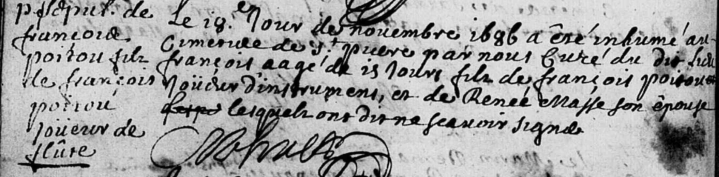 sepult. de
françois
poitou filz
de françois
poitou
joüeur de
flûte
Le 18.e Jour de novembre 1686 a êté inhumé au
Cimetiere de St. pierre par nous Curé du dit Lieu
françois aagé de 15 Jours filz de françois poitou
Joüeur d'instrument, et de Renée Massé son épouse
lesquelz ont dit ne scavoir signer